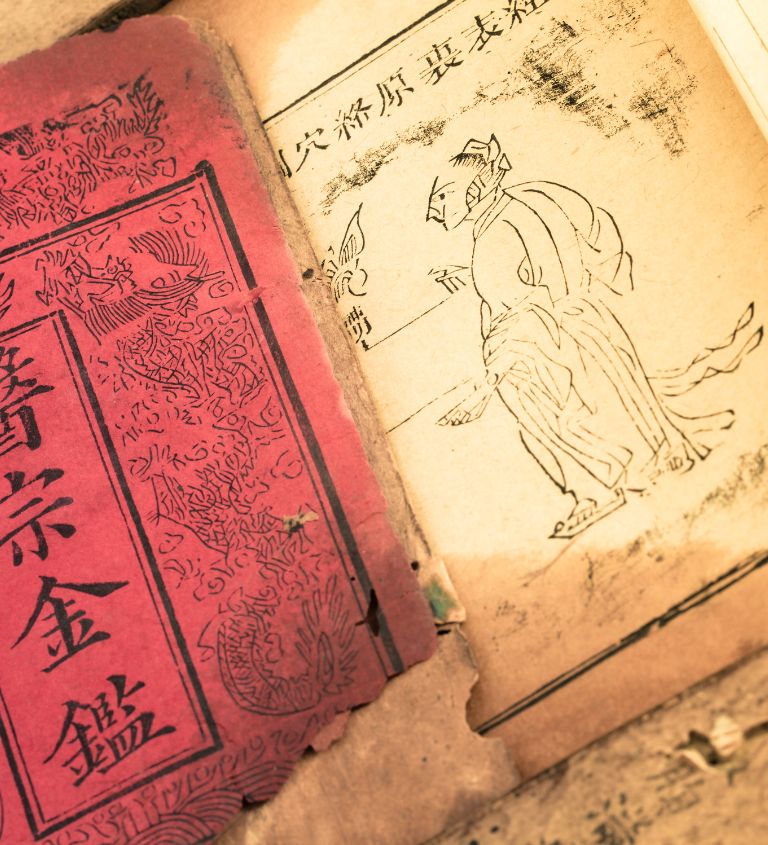 醫宗金鑑
經表裏原絡穴